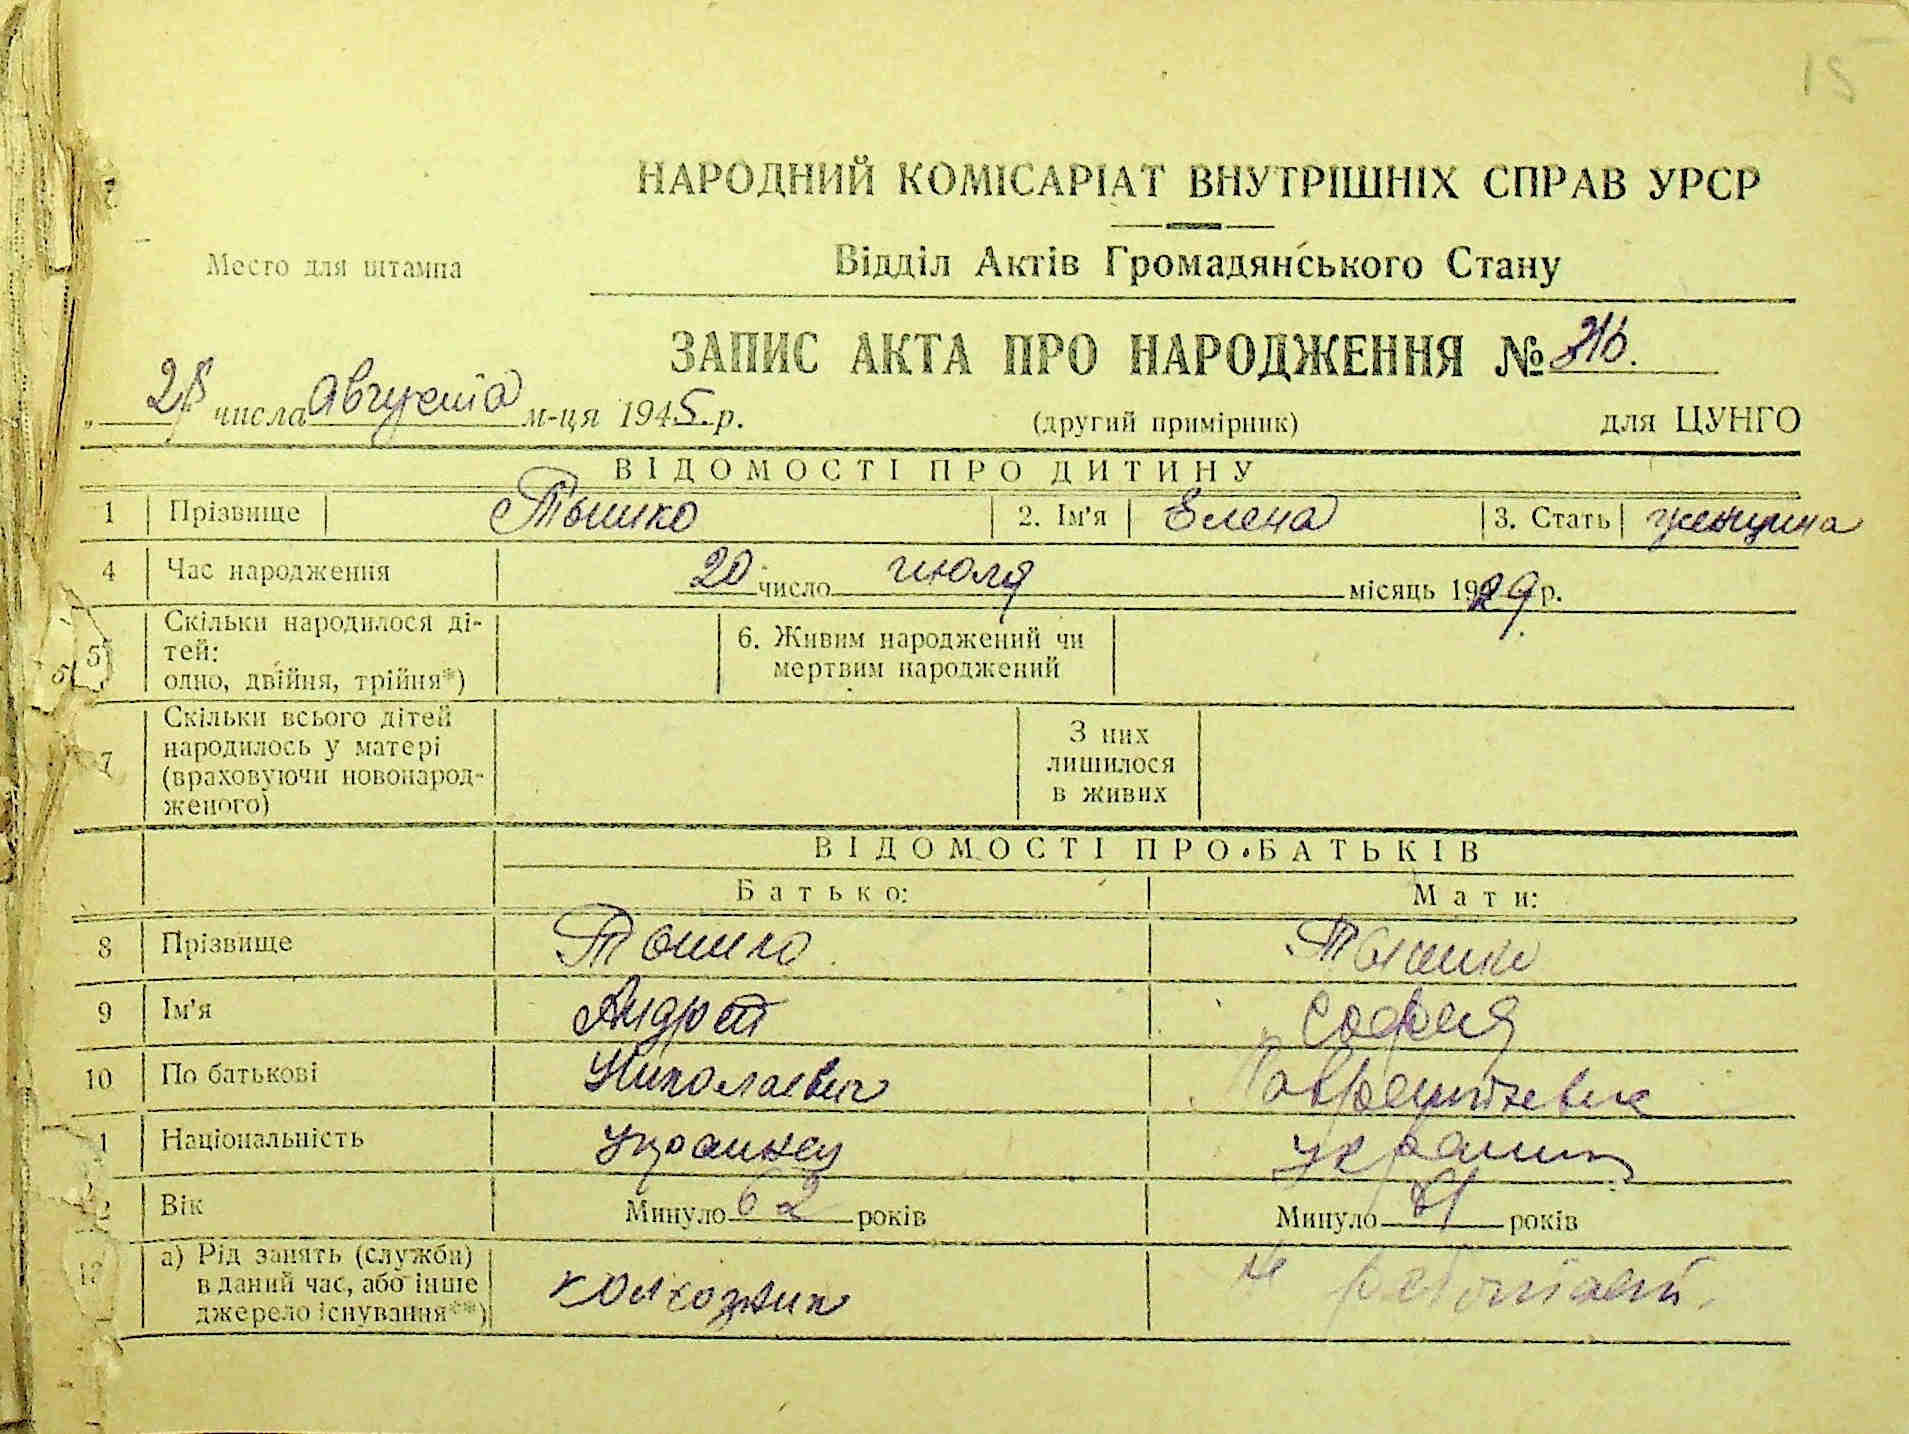 15
НАРОДНИЙ КОМІСАРІАТ ВНУТРІШНІХ СПРАВ УРСР
Место для штампа
Відділ Актів Громадянського Стану
ЗАПИС АКТА ПРО НАРОДЖЕННЯ №
„28 числа Августа м-ця 1945 р.
(другий примірник)
для ЦУНГО
ВІДОМОСТІ ПРО ДИТИНУ
1 Прізвище Тышко 2. Ім'я Елена 3. Стать женщина
4 Час народження 20 число июля місяць 1929 р.
5 Скільки народилося ді-
тей:
одно, двійня, трійня*)
6. Живим народжений чи
мертвим народжений
7 Скільки всього дітей
народилось у матері
(враховуючи новонарод-
женого)
З них
лишилося
в живих
ВІДОМОСТІ ПРО БАТЬКІВ
Батько: Мати:
8 Прізвище Тышко Тышко
9 Ім'я Андрей София
10 По батькові Николаевич
1 Національність Украинец украин
2 Вік Минуло 62 років Минуло років
13 а) Рід занять (служби)
в даний час, або інше
джерело існування**)
колхозник не работает.